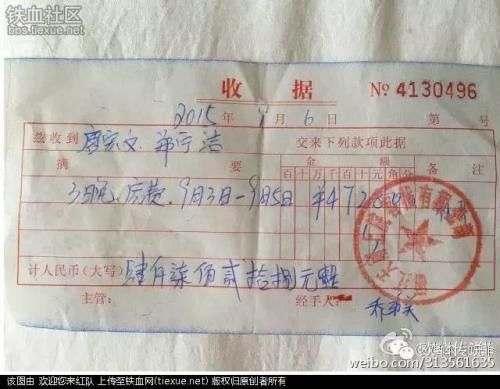 铁血社区
bbs.tiexue.net
收据 № 4130496
2015年9月6日 第 号
兹收到 郑宇洁 交来下列款项此据
摘要 金额 备注
百十万千百十元角分
3日 房费. 9月3日-9月5日 ¥4728 00
计人民币(大写) 肆仟柒佰贰拾捌元整
主管: 经手人:
weibo.com/313561635
该图由 欢迎您来红队 上传至铁血网(tiexue.net) 版权归原创者所有